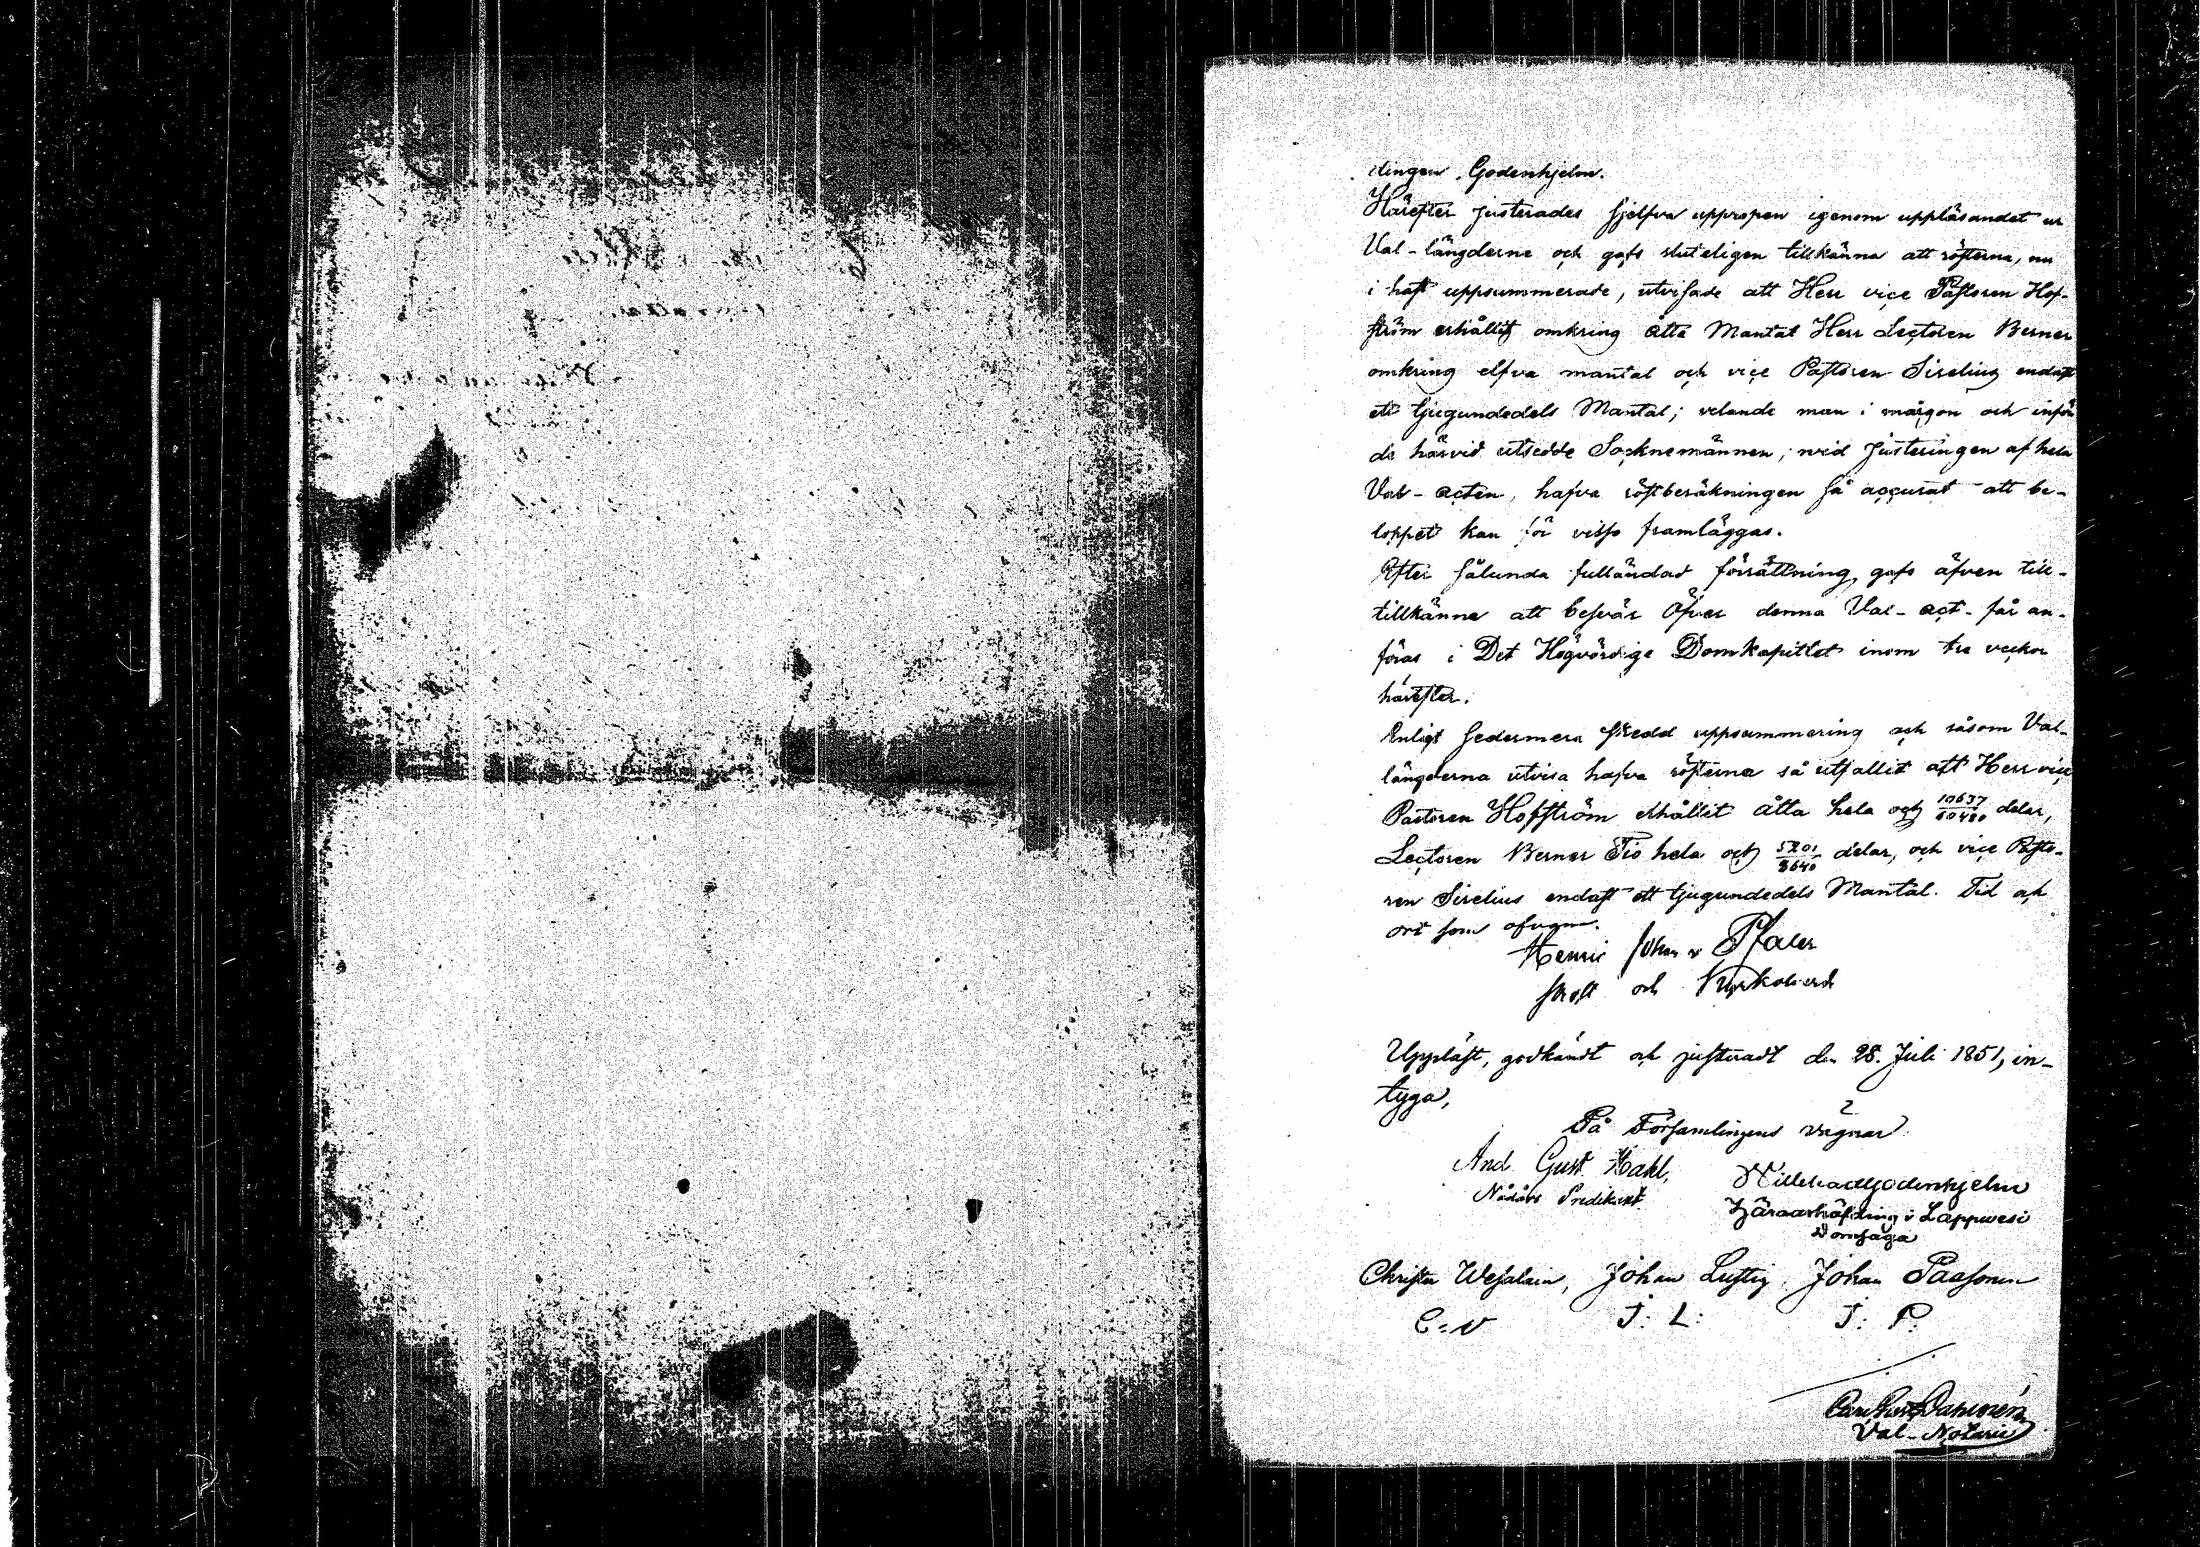 dingen Godenhjelm.
Härefter justerades sjelfva uppropen igenom uppläsandet ur
Val-längderne och gafs sluteligen tillkänna att rösterna, nu
i hast uppsummerade, utvisade att Herr vice Pastoren Hof-
ström erhållit omkring åtta Mantal Herr Lectoren Berner
omkring elfva mantal och vice Pastoren Sirelius endast
ett tjugundedels Mantal; velande man i morgon och inför
de härvid utsedde Socknemännen, wid Justeringen af hela
Val-acten, hafva röstberäkningen så accurat att be-
loppet kan för visso framläggas.
Efter sålunda fulländad förrättning, gafs äfven till-
tillkänna att besvär öfver denna Val-act får an-
föras i Det Högvördige Domkapitlet inom tre veckor
härefter.
Enligt sedermera skedd uppsummering och såsom Val-
längderna utvisa hafva rösterna så utfallit att Herr vice
Pastoren Hofström erhållit åtta hela och 10637/60480 delar,
Lectoren Berner Tio hela och 5201/8640 delar, och vice Pasto-
ren Sirelius endast ett tjugundedels Mantal. Tid och
ort som ofvan.
Henric Johan v Pfaler
Prost och Kyrkoherde
Uppläst, godkändt och justeradt den 28. Juli 1851, in-
tyga,
På Församlingens vägnar
And. Gust. Hahl,
Nådårs Predikant.
Willehad Godenhjelm
Häradshöfding i Lappvesi
Domsaga
Christer Wesalain, Johan Lustig, Johan Paasonen
C: V J: L: J: P:
Dahlmén
Val-Notarie